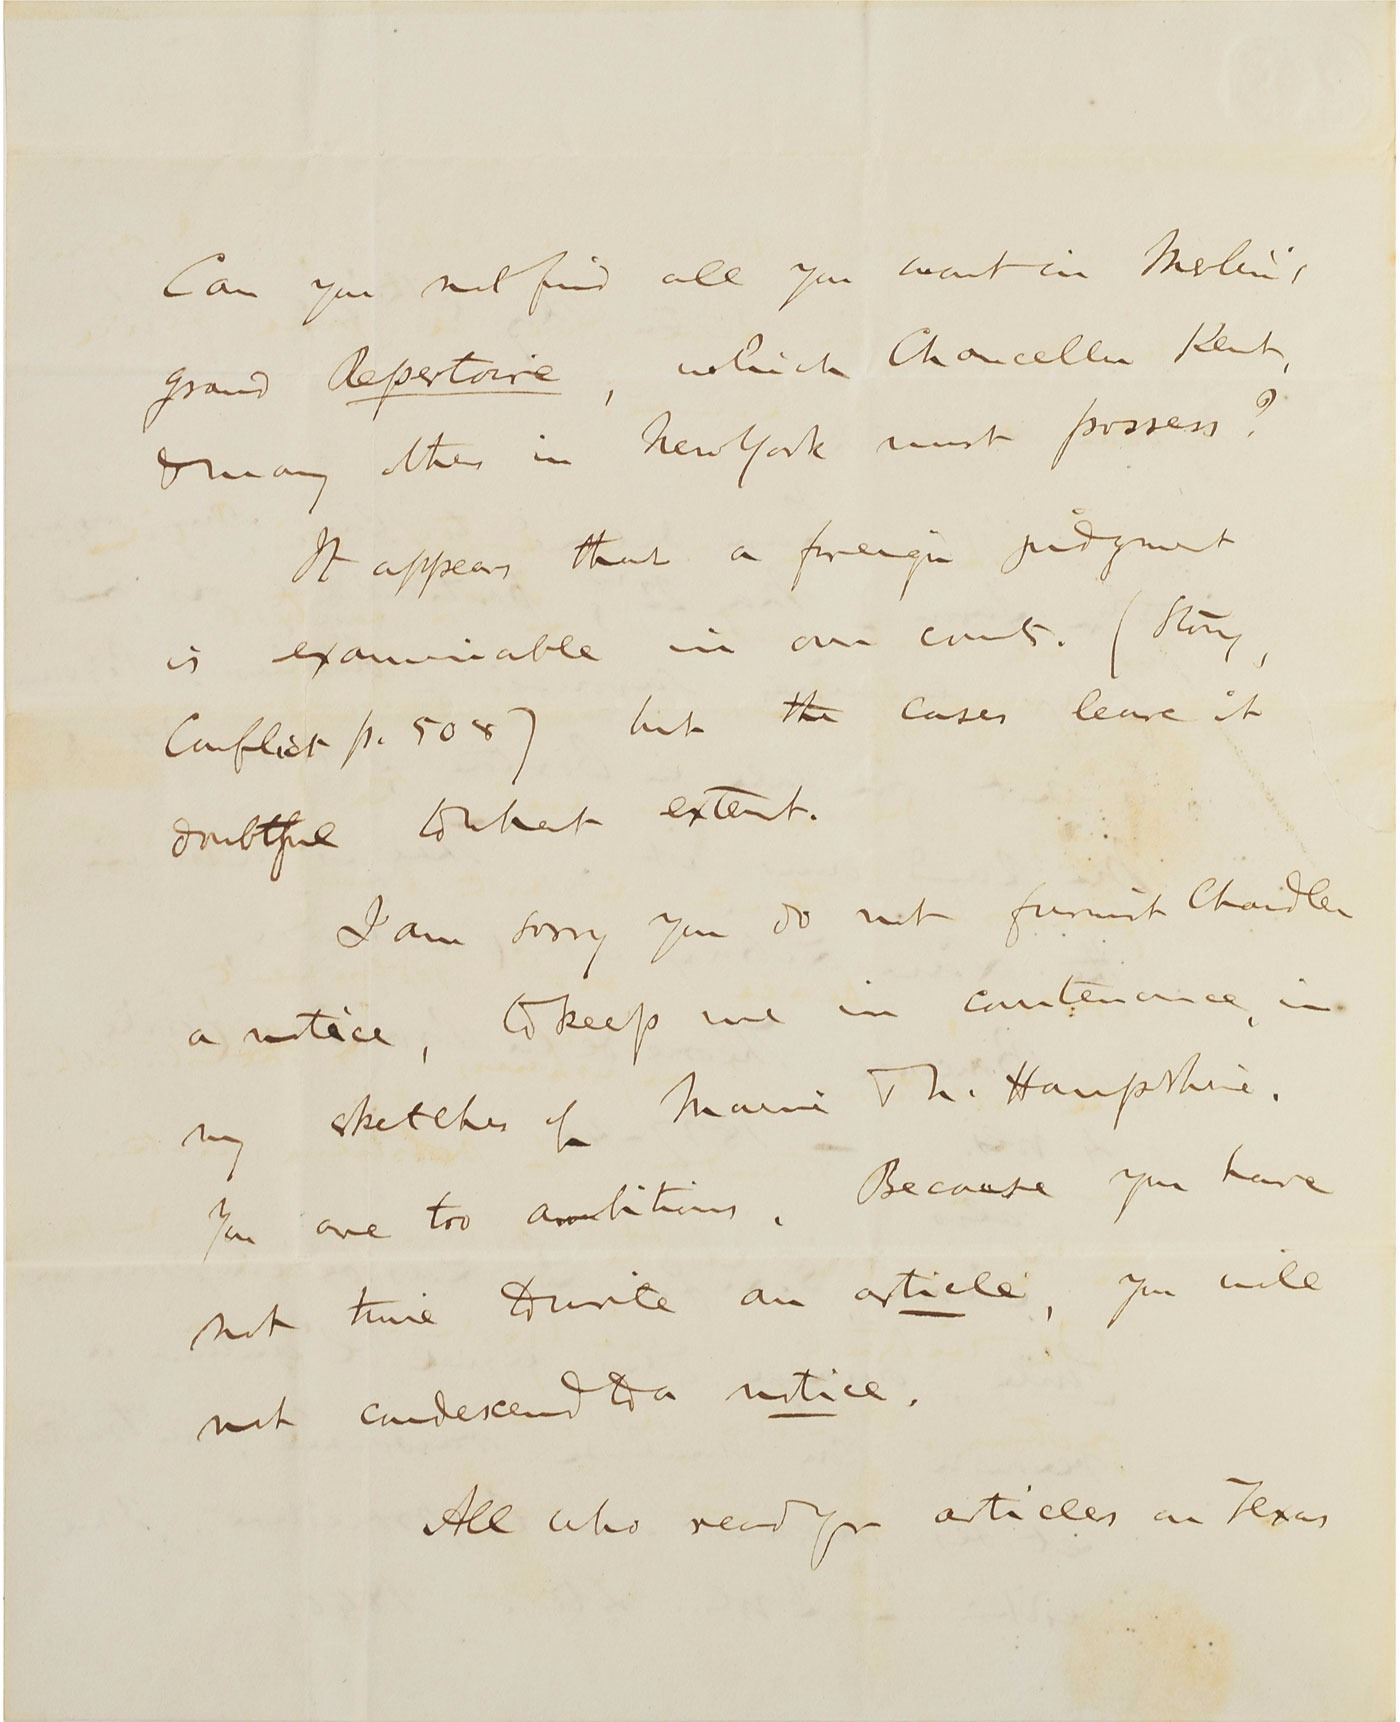 Can you not find all you want in Merlin's
grand Repertoire, which Chancellor Kent,
& many others in New York must possess?
It appears that a foreign judgment
is examinable in our courts. (Story,
Conflict p. 508) but the cases leave it
doubtful to what extent.
I am sorry you do not furnish Chandler
a notice, to keep me in countenance, in
my sketches of Maine & N. Hampshire.
You are too ambitious. Because you have
not time to write an article, you will
not condescend to a notice.
All who read yr articles on Texas